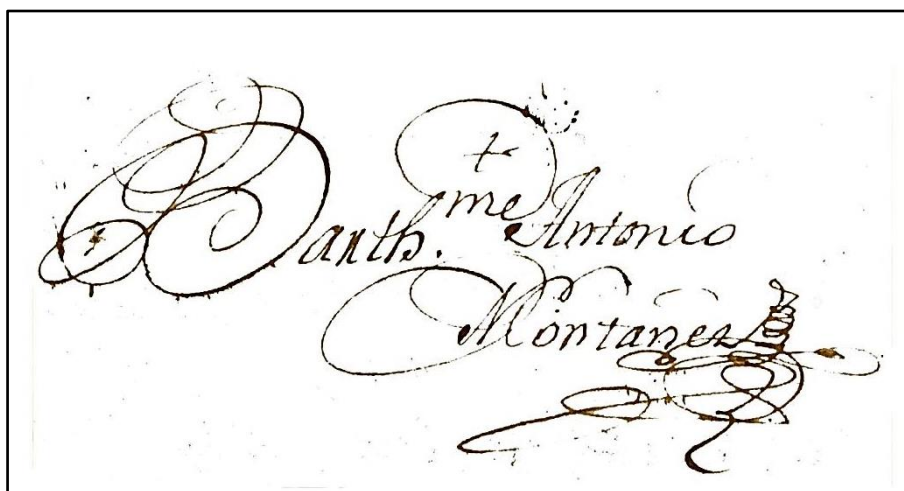 Barth.me Antonio
Montañez